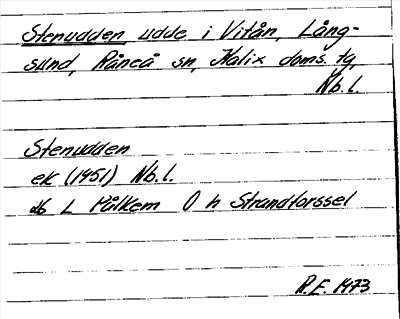 Stenudden, udde i Vitån, Lång-
sund, Råneå sn, Kalix doms. tg,
Nb.l.
Stenudden
ek (1951) Nb.l.
db L Pålkem O h Strandtorssel
R.E. 1973